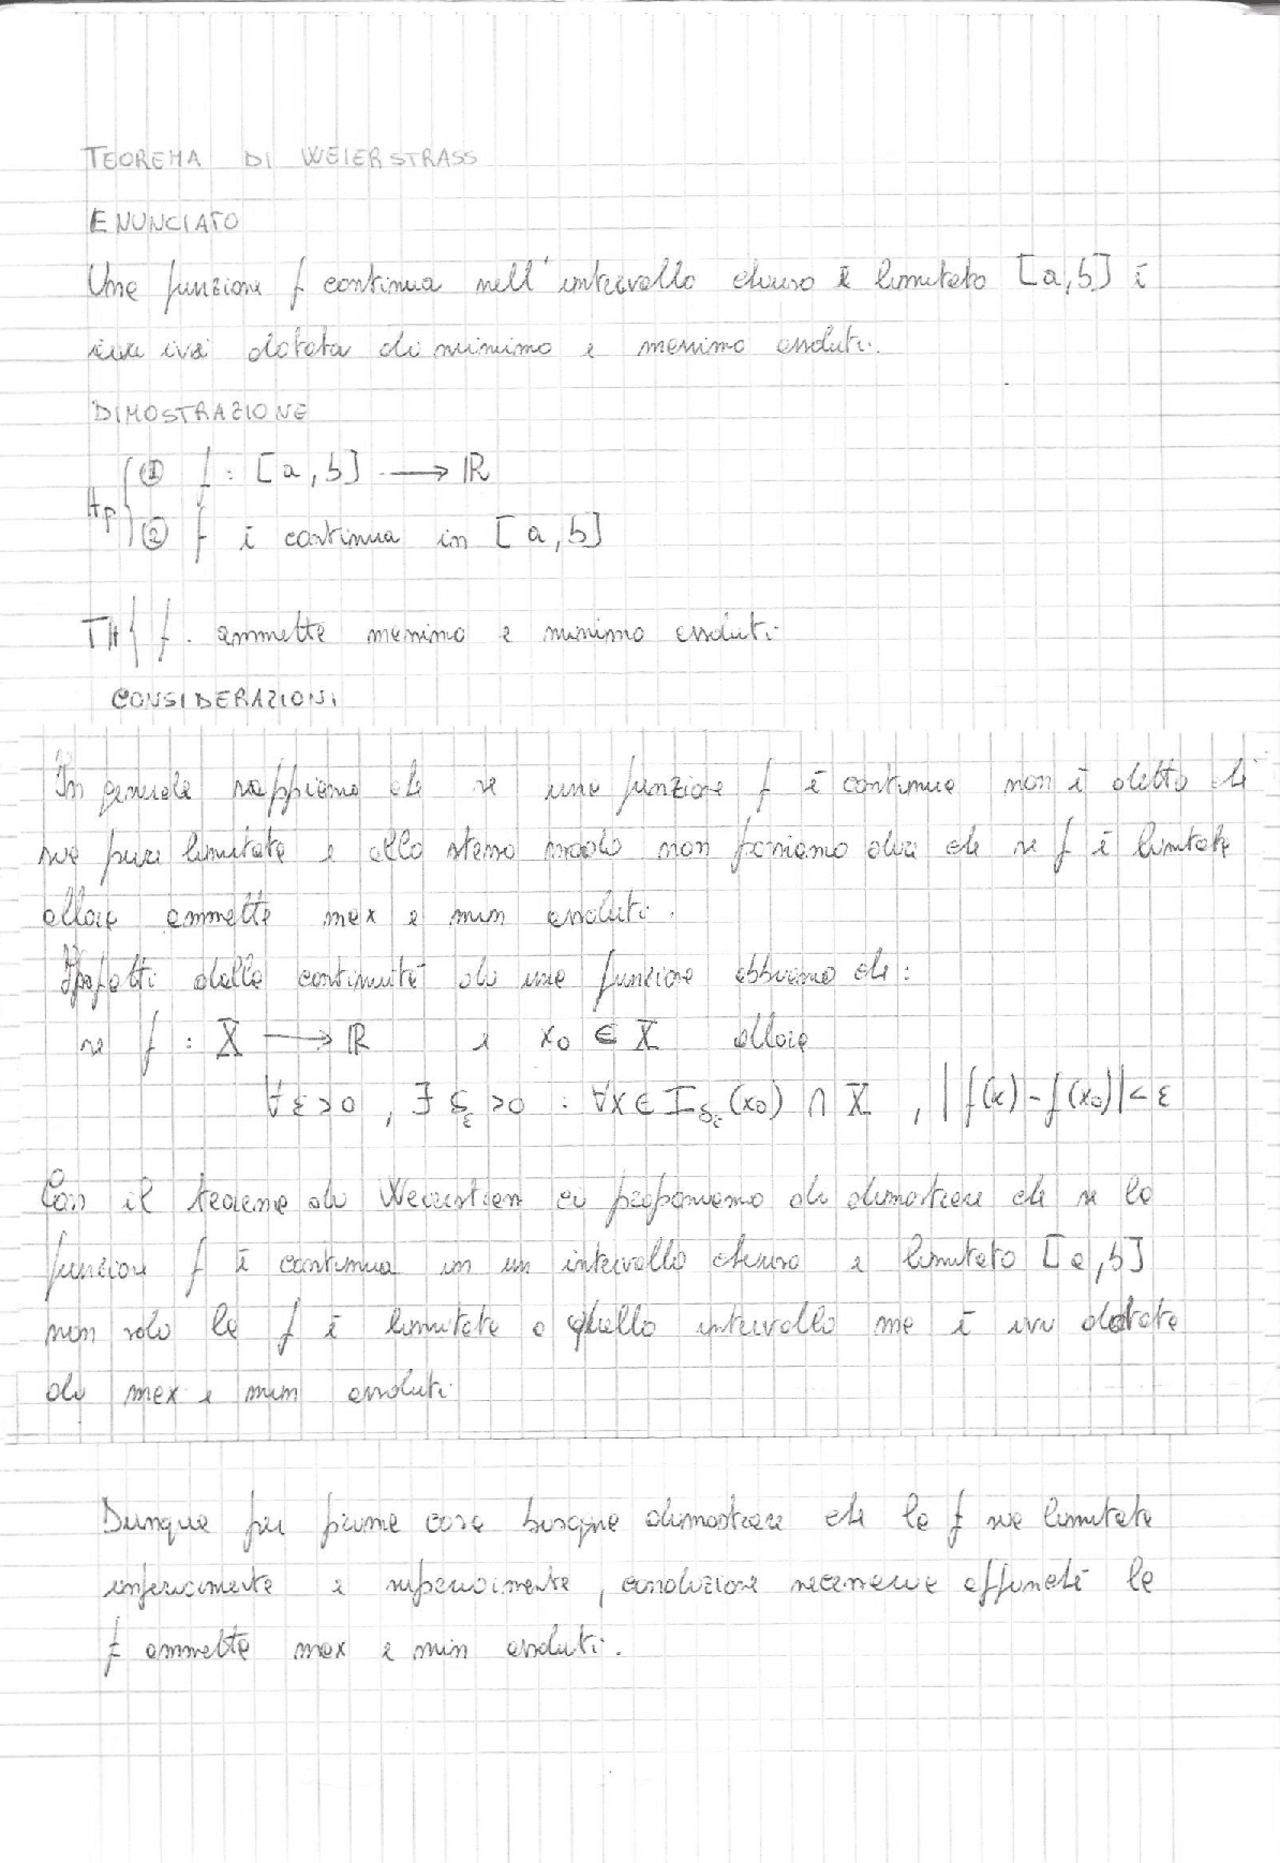 TEOREMA DI WEIERSTRASS
ENUNCIATO
Una funzione f continua nell'intervallo chiuso e limitato [a,b] è
ivi dotata di minimo e massimo assoluti.
DIMOSTRAZIONE
Hp { ① f : [a,b] → ℝ
② f è continua in [a,b]
TH { f. ammette massimo e minimo assoluti
CONSIDERAZIONI
In generale sappiamo che se una funzione f è continua non è detto che
sia pure limitata e allo stesso modo non possiamo dire che se f è limitata
allora ammette max e min assoluti.
Infatti dalla continuità di una funzione abbiamo che:
se f : X → ℝ e x₀ ∈ X allora
∀ε>0 , ∃ δ_ε >0 : ∀x ∈ I_δε (x₀) ∩ X , |f(x) - f(x₀)| < ε
Con il teorema di ci proponiamo di dimostrare che se la
funzione f è continua in un intervallo chiuso e limitato [a,b]
non solo la f è limitata a quello intervallo ma è ivi dotata
di max e min assoluti
Dunque per prima cosa bisogna dimostrare che la f sia limitata
inferiormente e superiormente, condizione necessaria affinché la
f ammetta max e min assoluti.